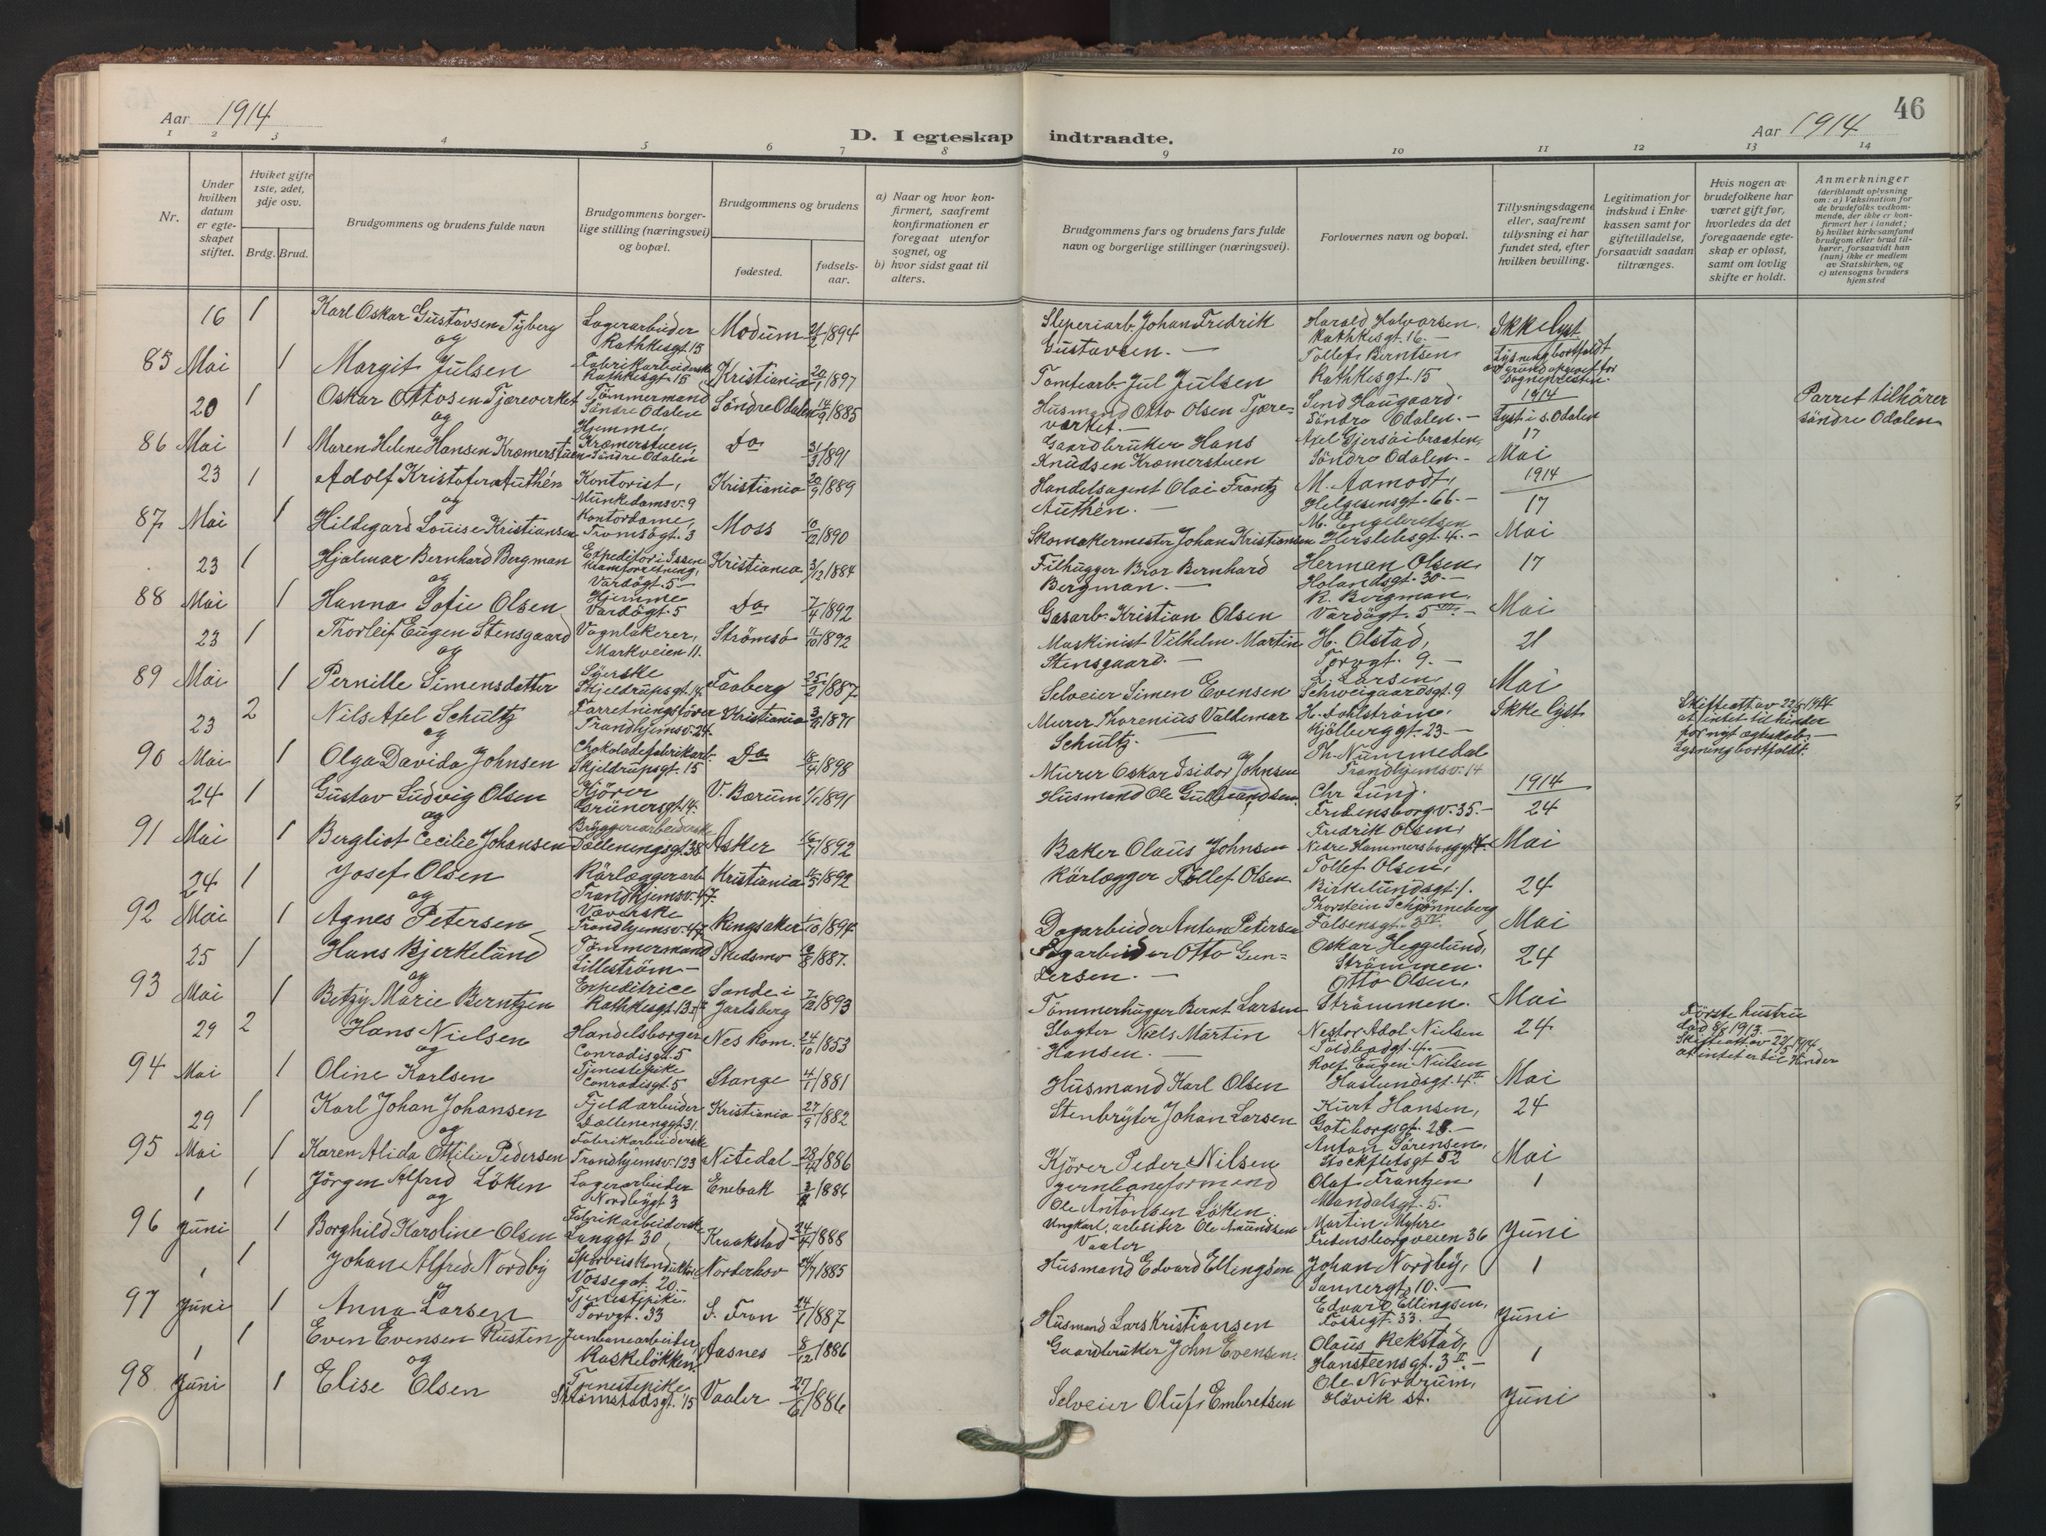 46
Aar 1914
D. I egteskap indtraadte.
Aar 1914
1 2 3 4 5 6 7 8 9 10 11 12 13 14
Nr.
Under hvilken datum er egteskapet stiftet.
Hviket gifte 1ste, 2det, 3dje osv.
Brdg. Brud.
Brudgommens og brudens fulde navn
Brudgommens borgerlige stilling (næringsvei) og bopæl.
Brudgommens og brudens
fødested.
fødselsaar.
a) Naar og hvor konfirmert, saafremt konfirmationen er foregaat utenfor sognet, og
b) hvor sidst gaat til alters.
Brudgommens fars og brudens fars fulde navn og borgerlige stillinger (næringsvei).
Forlovernes navn og bopæl.
Tillysningsdagene eller, saafremt tillysning ei har fundet sted, efter hvilken bevilling.
Legitimation for indskud i Enkekassen samt for giftetilladelse, forsaavidt saadan tiltrænges.
Hvis nogen av brudefolkene har været gift før, hvorledes da det foregaaende egteskap er opløst, samt om lovlig skifte er holdt.
Anmerkninger
(deriblandt oplysning om: a) Vaksination for de brudefolks vedkommende, der ikke er konfirmert her i landet; b) hvilket kirkesamfund brudgom eller brud tilhører, forsaavidt han (hun) ikke er medlem av Statskirken, og c) utensogns bruders hjemsted
85 16 Mai 1 Karl Oskar Gustavsen Tyberg Lagerarbeider Rathkesgt. 15 Modum 21/2 1894 Sliperiarb. Johan Fredrik Gustavsen. Harald Halvorsen, Rathkesgt. 16. Ikke lyst
og
1 Margit Julsen Fabrikarbeiderske Rathkesgt 15 Kristiania 20/1 1897 Tomtearb Jul Julsen Tollef Berntsen Rathkesgt. 15 Lysning bortfaldt
86 20 Mai 1 Oskar Ottosen Tjæreverket Tømmermand Søndre Odalen Søndre Odalen 14/9 1885 Husmand Otto Olsen Tjæreverket. Søndre Odalen. 1914 Lyst i S. Odalen Parret tilhører søndre Odalen
og
1 Maren Helene Hansen Kræmerstuen Hjemme, Kræmerstuen, Søndre Odalen Do 31/3 1891 Gaardbruker Hans Knudsen Kræmerstuen Søndre Odalen 17 Mai
87 23 Mai 1 Adolf Kristofer Authén Kontorist, Munkedamsv. 9 Kristiania 20/9 1889 Handelsagent Olai Frantz Authén. M. Aamodt, Helgesensgt. 66. 1914
og
1 Hildegard Louise Kristiansen Kontordame, Tromsøgt. 3 Moss 10/2 1890 Skomakermester Johan Kristiansen M. Engebretsen Herslebsgt. 4. 17 Mai
88 23 Mai 1 Hjalmar Bernhard Bergman Vardøgt. 5 Kristiania 3/12 1884 Filhugger Bror Bernhard Bergman. Herman Olsen Holandsgt. 30. 17
og
1 Hanna Sofie Olsen Hjemme Vardøgt. 5 Do 7/4 1892 Gasarb. Kristian Olsen R. Bergman, Vardøgt. 5 III. Mai
89 23 Mai 1 Thorleif Eugen Stensgaard Vognlakerer, Markveien 11. Strømsø 11/10 1892 Maskinist Vilhelm Martin Stensgaard. H. Olstad, Torvgt. 9. 21
og
1 Pernille Simensdatter Syerske Skjeldrupsgt. 14. Faaberg 25/3 1887 Selveier Simen Evensen L. Larsen Schweigaardsgt. 9 Mai
90 23 Mai 2 Nils Axel Schultz Trondhjemsv. 24. Kristiania 3/8 1871 Murer Thorenius Valdemar Schultz. Kjølberggt. 23. Ikke lyst Skifteatt av 22/5 1914 at intet til hinder for nyt ægteskab. Lysning bortfaldt.
og
1 Olga Davida Johnsen Chokoladefabrikarb. Skjeldrupsgt. 15 Do 18/4 1898 Murer Oskar Isidor Johnsen Th. Nummedal Trondhjemsv. 14
91 24 Mai 1 Gustav Ludvig Olsen Kjører Grünersgt. 4. V. Bærum 1/1 1891 Husmand Ole Gulbrandsen. Chr. Lund. Fredensborgv. 35. 1914 24
og
1 Bergliot Cecilie Johansen Bryggeriarbeiderske Dælleningsgt. 38. Asker 16/7 1892 Baker Olaus Johnsen Fredrik Olsen, Nedre Hammersborggt. Mai
92 24 Mai 1 Josef Olsen Rørlæggerarb Trondhjemsv. 47. Kristiania 11/5 1892 Rørlægger Tollef Olsen Tollef Olsen, Birkelundsgt. 1. 24
og
1 Agnes Petersen Væverske Trondhjemsv. 47 Ringsaker 1/10 1894 Dagarbeider Anton Petersen Thorstein Schjønneberg Falsensgt. 3 IV. Mai
93 25 Mai 1 Hans Bjerkelund Tømmermand Lillestrøm Skedsmo 9/8 1887. Sagarbeider Otto Gundersen. Oskar Heggelund, Strømmen. 24
og
1 Betzy Marie Berntzen Expeditrice Rathkesgt. 13 Sande i Jarlsberg 7/12 1893 Tømmerhugger Bernt Larsen Otto Olsen, Strømmen. Mai
94 29 Mai 2 Hans Nielsen Handelsborger Conradisgt. 5 Nes Rom. 24/10 1853 Slagter Niels Martin Hansen. Nestor Adol. Nielsen Toldbodgt. 4. 24 Første hustru død 1913. Skifteatt av 22/5 1914 at intet er til hinder
og
1 Oline Karlsen Tjenestepike Conradisgt. 5 Stange 4/1 1881 Husmand Karl Olsen Rolf Eugen Nielsen Haslundsgt. 4 II Mai
95 29 Mai 1 Karl Johan Johansen Fjeldarbeider Dælleneggt. 31. Kristiania 27/9 1882 Stenbryter Johan Larsen Kurt Hansen, Gøteborggt. 28. 24
og
1 Karen Alida Ottilie Pedersen Fabrikarbeiderske Trondhjemsv. 123 Nitedal 28/4 1886 Kjører Peder Nilsen Anton Sørensen, Stockfletsgt 52 Mai
96 1 Juni 1 Jørgen Alfred Løken Lagerarbeider Nordbygt 3 Enebak 1886 Jernbaneformand Ole Antonsen Løken. Olaf Frantzen Mandalsgt. 5. 1
og
1 Borghild Karoline Olsen Fabrikarbeiderske Langgt 30 Kraakstad 24/4 1888 Ungkarl, arbeider Ole Amundsen Vaaler Martin Myhre Fredensborgveien 36 Juni
97 1 Juni 1 Johan Alfred Nordby Sporveiskonduktør Vossegt. 20. Norderhov 24/7 1885 Husmand Edvard Ellingsen Johan Nordby, Sannergt. 10. 1
og
1 Anna Larsen Tjenestepike. Torvgt. 33 S. Fron 24/1 1887 Husmand Lars Kristiansen Edvard Ellingsen, Fossegt. 33. Juni
98 1 Juni 1 Even Evensen Rusten Jernbanearbeider, Raskeløkken Aasnes 8/12 1886 Gaardbruker John Evensen. Olaus Rekstad, Hansteensgt. 3 II. 1
og
1 Elise Olsen Tjenestepike Strømstadsgt. 15 Vaaler 27/6 1886 Selveier Oluf Embretsen Ole Nordrum, Høvik st. Juni